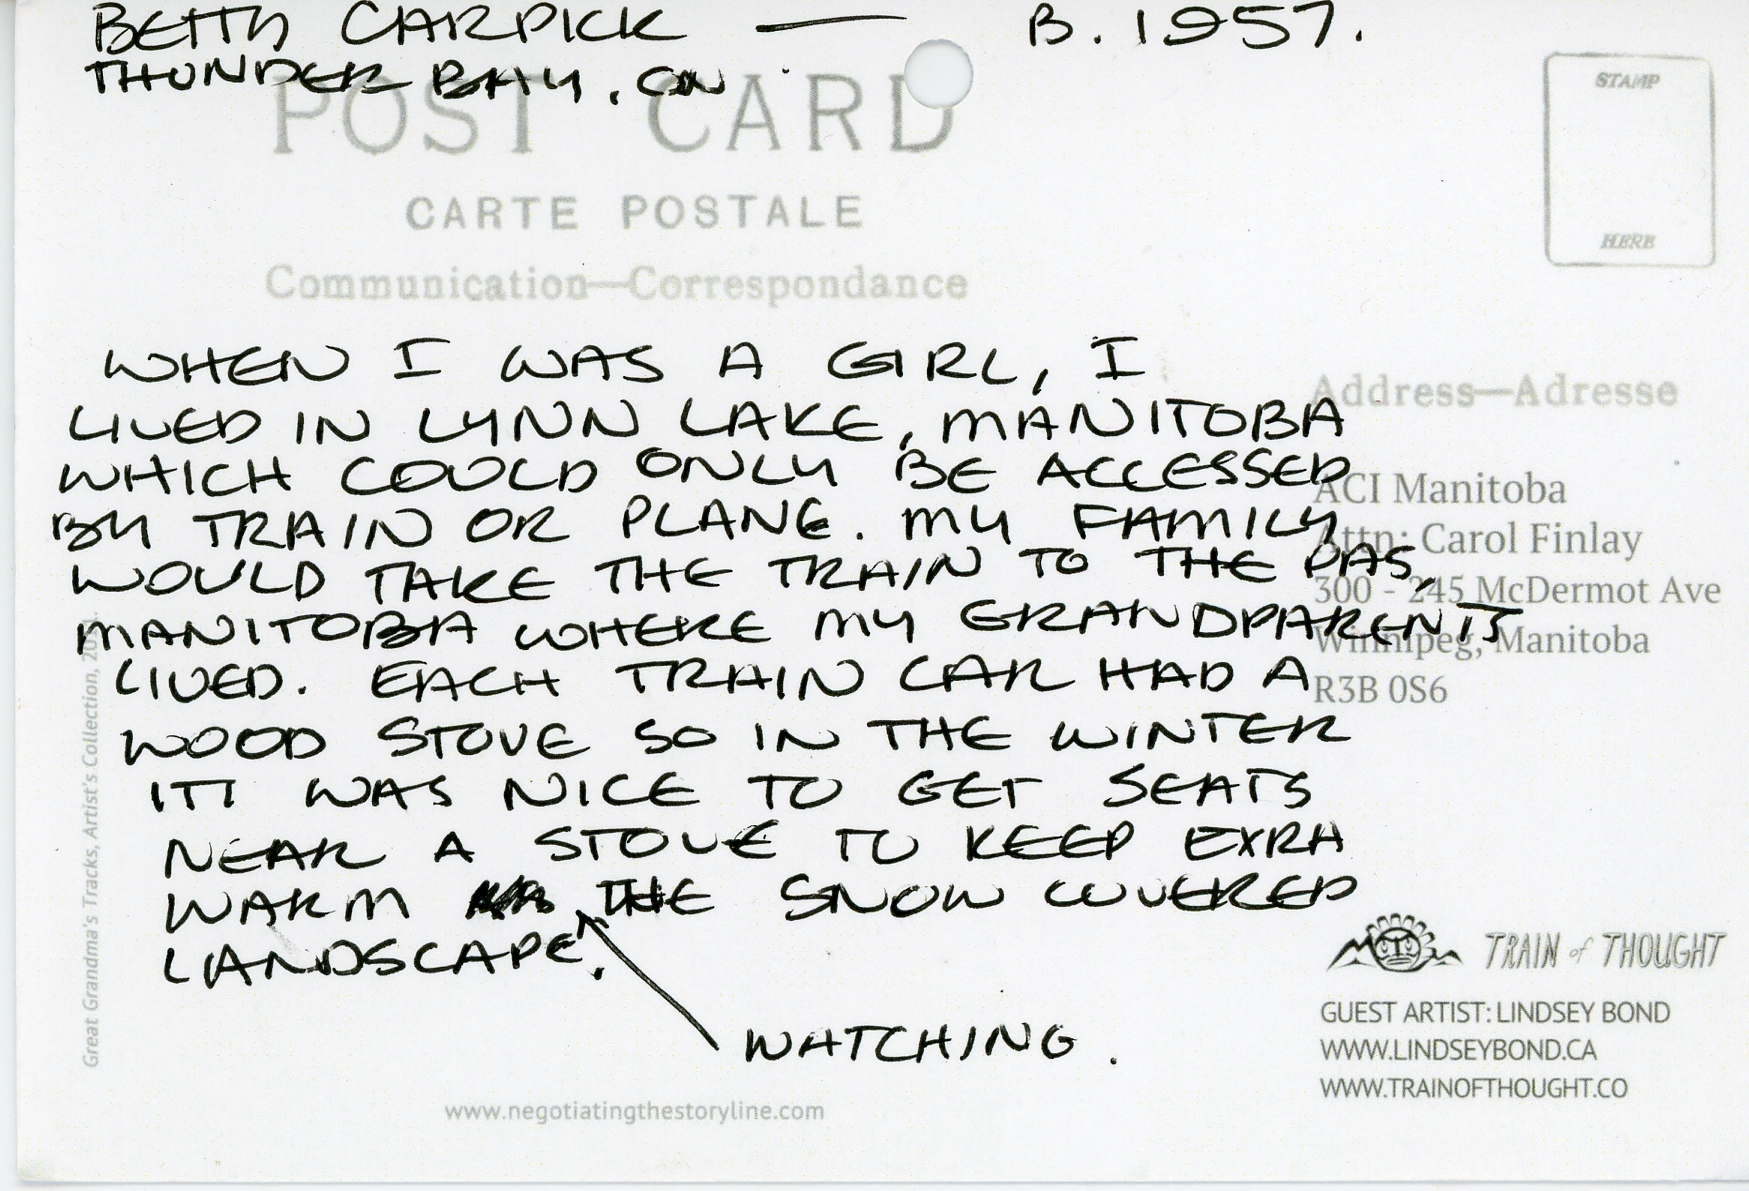 BETTY CARPICK — B. 1957.
THUNDER BAY, ON
POST CARD
CARTE POSTALE
Communication—Correspondance
STAMP
HERE
WHEN I WAS A GIRL, I
LIVED IN LYNN LAKE, MANITOBA
WHICH COULD ONLY BE ACCESSED
BY TRAIN OR PLANE. MY FAMILY
WOULD TAKE THE TRAIN TO THE PAS,
MANITOBA WHERE MY GRANDPARENTS
LIVED. EACH TRAIN CAR HAD A
WOOD STOVE SO IN THE WINTER
IT WAS NICE TO GET SEATS
NEAR A STOVE TO KEEP EXRA
WARM THE SNOW COVERED
LANDSCAPE.
WATCHING.
Address—Adresse
ACI Manitoba
Attn: Carol Finlay
300 - 245 McDermot Ave
Winnipeg, Manitoba
R3B 0S6
Great Grandma's Tracks, Artist's Collection,
TRAIN of THOUGHT
GUEST ARTIST: LINDSEY BOND
WWW.LINDSEYBOND.CA
WWW.TRAINOFTHOUGHT.CO
www.negotiatingthestoryline.com